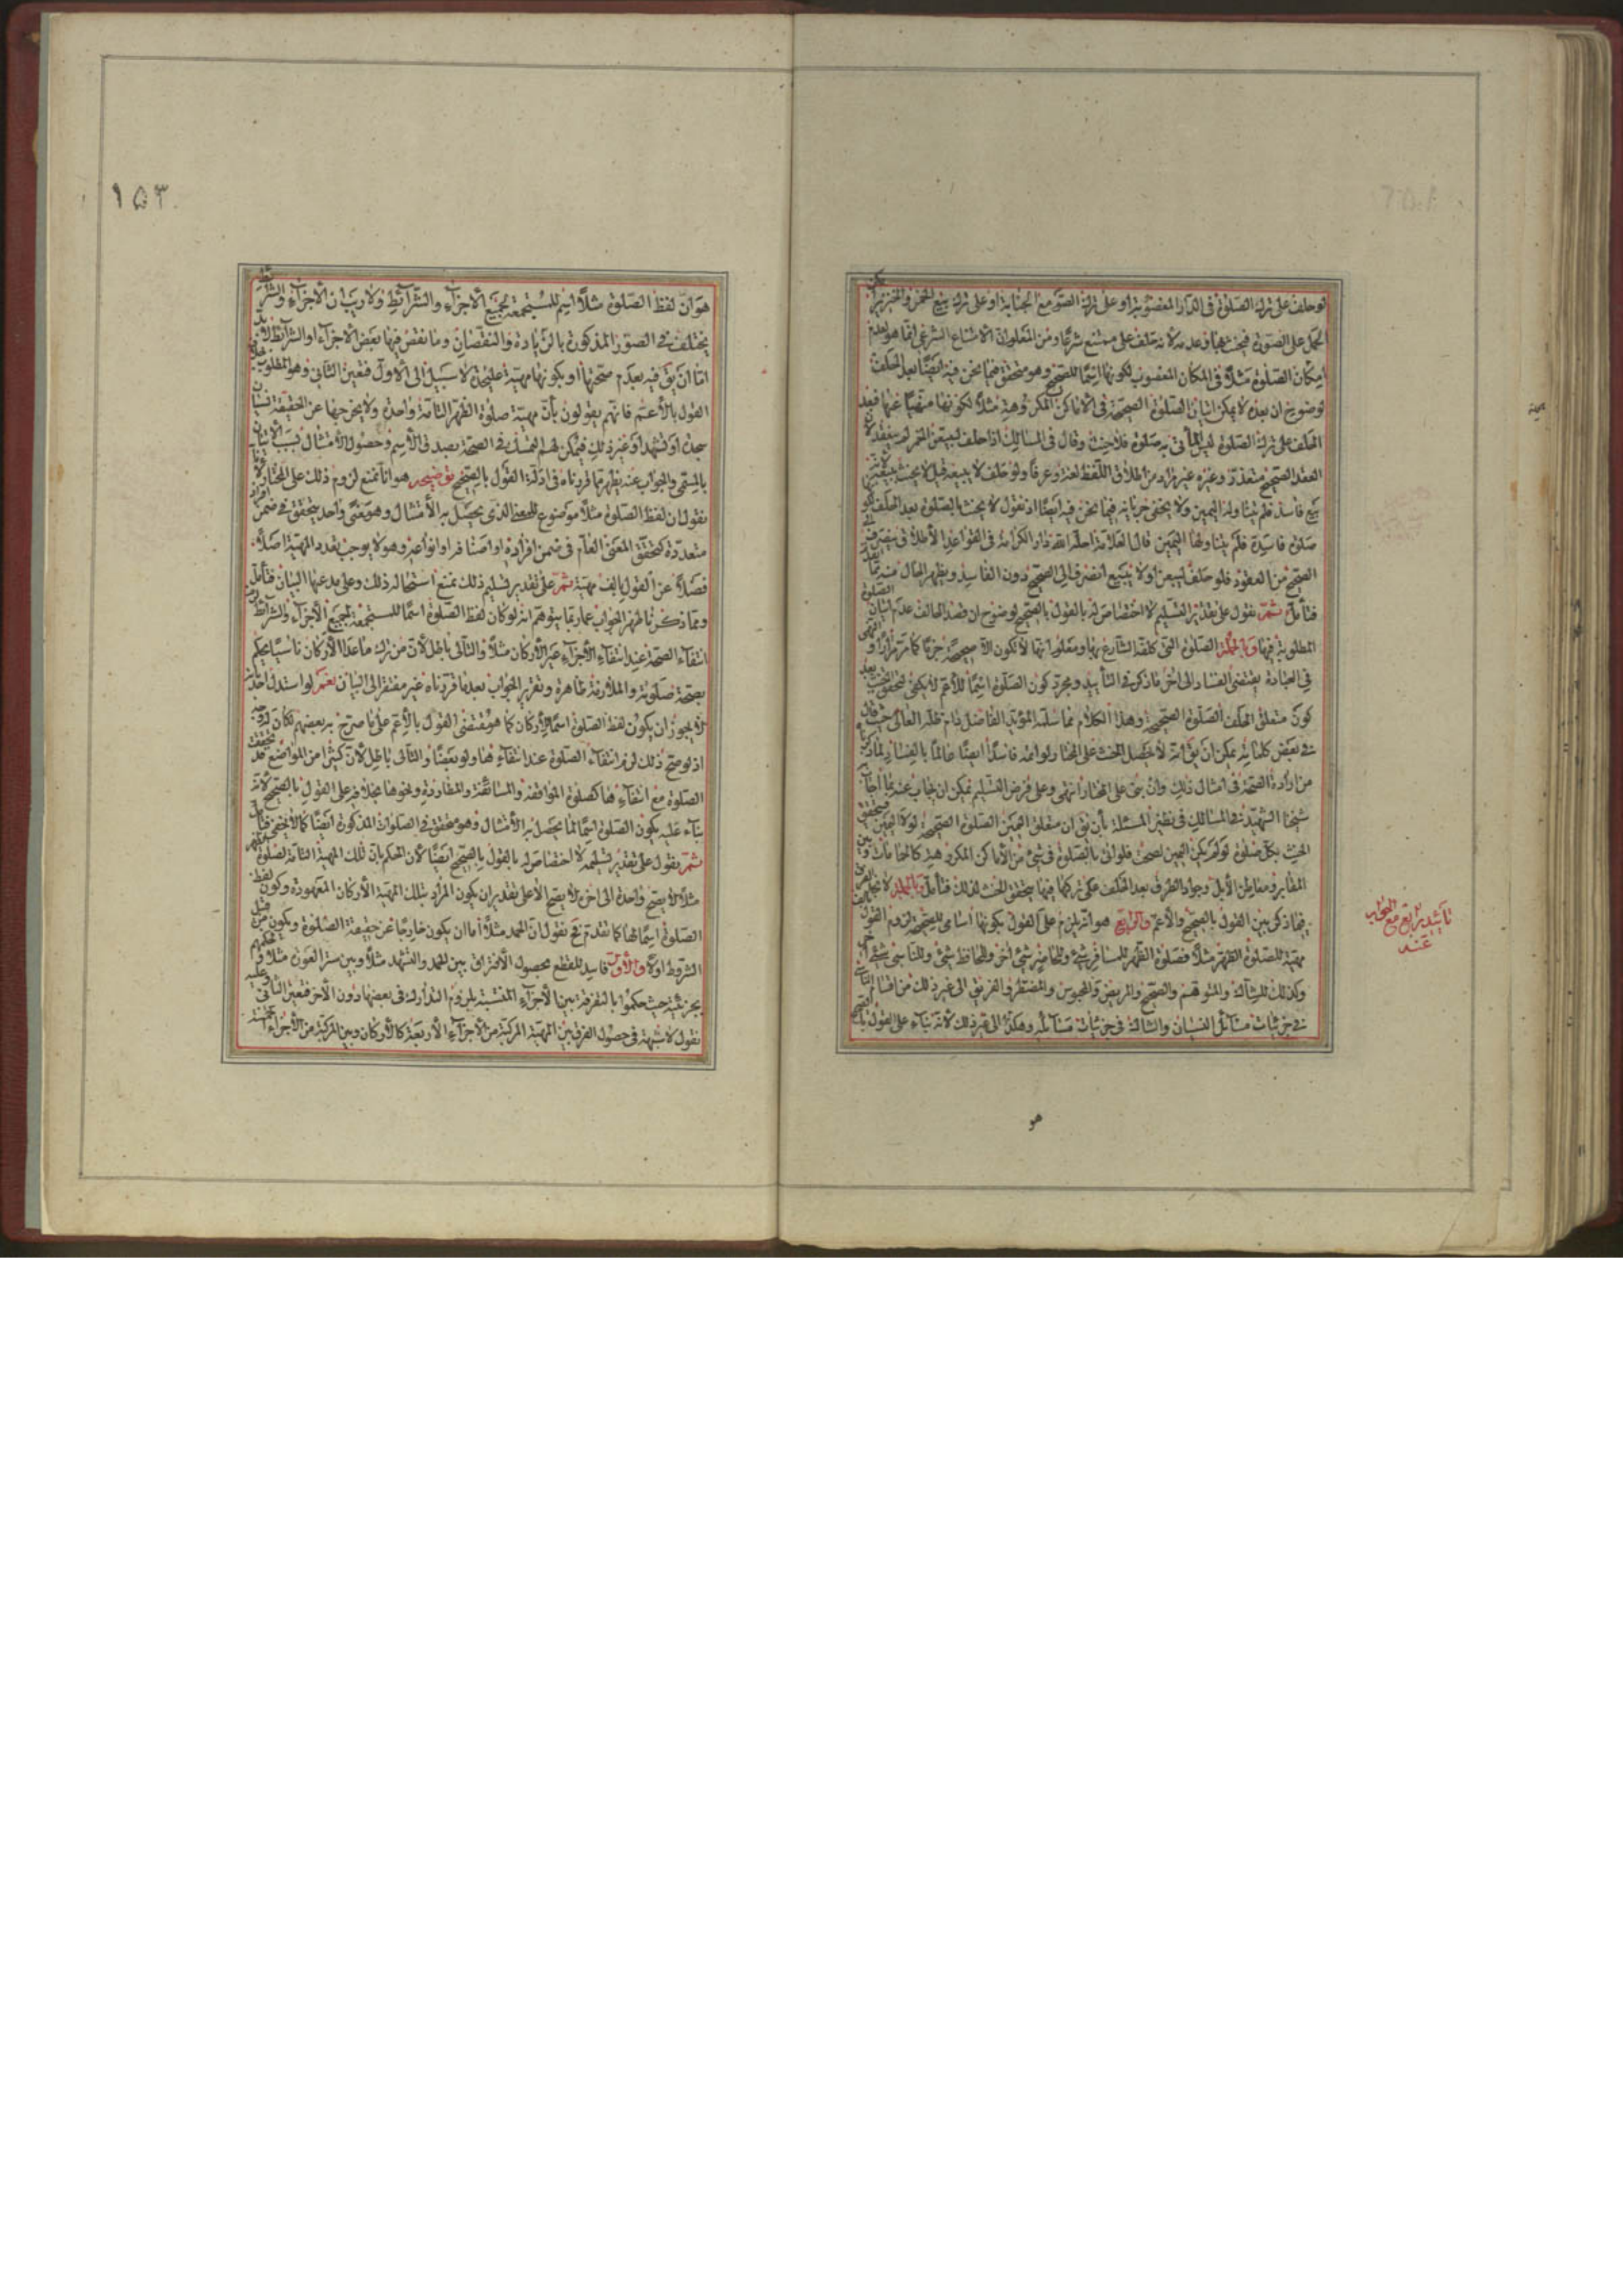 لو حلف على ترك الصلوة فى الدار المغصوبة او على ترك الصوم مع الجنابة او على ترك بيع الخمر والخنزير
الحمل على الصورة فيحنث بها وعدمه لانه حلف على ممتنع شرعا ومن المعلوم ان الامتناع الشرعى انما هو لعدم
امكان الصلوة مثلا فى المكان المغصوب لكونها اسما للصحيح وهو متحقق فيما نحن فيه ايضا بعد الحلف
لوضوح ان بعده لا يمكن اتيان الصلوة الصحيحة فى الاماكن المكروهة مثلا لكونها منهيا عنها فبعد
الحلف على ترك الصلوة ليس المأتى به صلوة فلا حنث وقال فى المسالك اذا حلف ليبيعن الخمر لم ينعقد لان
العقد الصحيح متعذر وغيره غير مراد من اطلاق اللفظ لغة وعرفا ولو حلف لا يبيعه قيل لا يحنث ببيعه
بيع فاسد فلم يتناوله اليمين ولا يخفى جريانه فيما نحن فيه ايضا اذ نقول لا يحنث بالصلوة بعد الحلف
صلوة فاسدة فلم يتناولها اليمين قال العلامة احله الله دار الكرامة فى القواعد الاطلاق ينصرف
الصحيح من العقود فلو حلف ليبيعن او لا يبيع انصرف الى الصحيح دون الفاسد ويظهر الحال منه مما
فتأمل ثم نقول على تقدير التسليم لا اختصاص له بالقول بالصحيح لوضوح ان قصد الحالف عدم اتيان الصلوة
المطلوبة فيها وبالجملة الصلوة التى كلفه الشارع بها ومعلوم انها لا تكون الا صحيحة جزما كما مر مرارا
فى العبادة يقتضى الفساد الى اخر ما ذكره فى التأييد ومجرد كون الصلوة اسما للاعم لا يكفى لتحقق الحنث بعد
كون متعلق الحلف الصلوة الصحيحة وهذا الكلام مما سلمه المؤيد الفاضل دام ظله العالى حيث قال
فى بعض كلماته يمكن ان يق انه لا يحصل الحنث على المختار ولو اتمه فاسدا ايضا عالما بالفساد لما ذكرنا
من ارادة الصحة فى امثال ذلك وان بنى على المختار انتهى وعلى فرض التسليم يمكن ان يجاب عنه بما اجاب
شيخنا الشهيد فى المسالك فى نظير المسئلة بأن يق ان متعلق اليمين الصلوة الصحيحة لولا اليمين فيتحقق
الحنث بكل صلوة لو لم يكن اليمين لصحت فلو اتى بالصلوة فى شئ من الاماكن المكروهة كالحمامات وبين
المقابر ومعاطن الابل وجواد الطرق بعد الحلف على تركها فيها يتحقق الحنث لذلك فتأمل وبالجملة لا
فيما ذكر بين القول بالصحيح والاعم والرابع هو انه يلزم على القول بكونها اسامى للصحيحة لزوم القول
مهية للصلوة الظهر مثلا فصلوة الظهر للمسافر شئ وللحاضر شئ اخر وللحافظ شئ وللناسى شئ اخر
وكذلك للشاك والمتوهم والصحيح والمريض والمحبوس والمضطر والغريق الى غير ذلك من اقسام الناسى
فى جزئيات مسائل النسيان والشاك فى جزئيات مسائله وهكذا الى غير ذلك لانه بناء على القول
تأييد رابع مع الجواب
عنه
هو
١٥٣
هو ان لفظ الصلوة مثلا اسم للمستجمعة لجميع الاجزاء والشرائط ولا ريب ان الاجزاء والشرائط
يختلف فى الصور المذكورة بالزيادة والنقصان وما نقص فيها بعض الاجزاء او الشرائط
اما ان يق فيه بعدم صحتها او بكونها مهية عليحدة لا سبيل الى الاول فتعين الثانى وهو المطلوب
القول بالاعم فانهم يقولون بأن مهية صلوة الظهر التامة واحدة ولا يخرجها عن الحقيقة نسيان
سجدة او تشهد او غير ذلك فيمكن لهم التمسك فى الصحة بصدق الاسم وحصول الامتثال بسبب الاتيان
بالمسمى والجواب عنه يظهر مما قررناه فى ادلة القول بالصحيح توضيحه هو انا نمنع لزوم ذلك على المختار لانا
نقول ان لفظ الصلوة مثلا موضوع للمعنى الذى يحصل به الامتثال وهو معنى واحد يتحقق فى ضمن افراد
متعددة كتحقق المعنى العام فى ضمن افراده او اصنافه او انواعه وهو لا يوجب تعدد المهية اصلا
فضلا عن القول بالف مهية ثم على تقدير تسليم ذلك نمنع استحالة ذلك وعلى مدعيها البيان فتأمل
ومما ذكرنا ظهر الجواب عما ربما يتوهم انه لو كان لفظ الصلوة اسما للمستجمعة لجميع الاجزاء والشرائط لزم
انتفاء الصحة عند انتفاء الاجزاء غير الاركان مثلا والتالى باطل لان من ترك ما عدا الاركان ناسيا يحكم
بصحة صلوته والملازمة ظاهرة وتقرير الجواب بعد ما قررناه غير مفتقر الى البيان نعم لو استدل احد
لا يجوز ان يكون لفظ الصلوة اسما للاركان كما هو مقتضى القول بالاعم على ما صرح به بعضهم لكان له وجه
اذ لو صح ذلك لزم انتفاء الصلوة عند انتفائها ولو بعضا والتالى باطل لان كثيرا من المواضع قد تحقق
الصلوة مع انتفائها كصلوة المواقفة والمسائفة والمطاردة ونحوها بخلافه على القول بالصحيح لانه
بناء عليه يكون الصلوة اسما لما يحصل به الامتثال وهو متحقق فى الصلوات المذكورة ايضا كما لا يخفى فتأمل
ثم نقول على تقدير تسليمه لا اختصاص له بالقول بالصحيح ايضا لان الحكم بان تلك المهية التامة لصلوة الظهر
مثلا لا يصح واحدة الى اخره لا يصح الا على تقدير ان يكون المراد بتلك المهية الاركان المعهودة وكون لفظ
الصلوة اسما لها كما تقدم فح نقول ان الحمد مثلا اما ان يكون خارجا عن حقيقة الصلوة ويكون من قبيل
الشروط او لا والاول فاسد للقطع بحصول الافتراق بين الحمد والتشهد مثلا وبين ستر العورة مثلا
بجزئيته حيث حكموا بالتفرقة بين الاجزاء المنسية بلزوم التدارك فى بعضها دون الاخر فتعين الثانى وعليه
نقول لا شبهة فى حصول الفرق بين المهية المركبة من الاجزاء الاربعة كالاركان وبين المركبة من الاجزاء